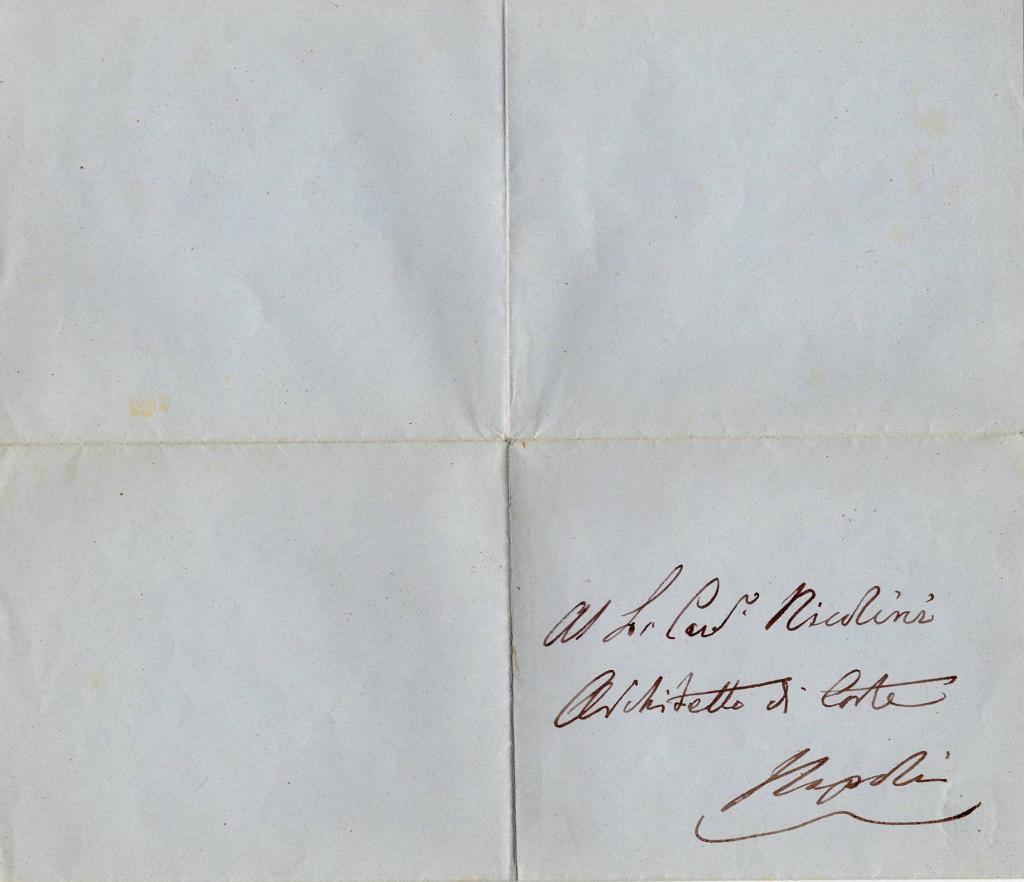 Al Sr. Cav.e Nicolini
Architetto di Corte
Napoli